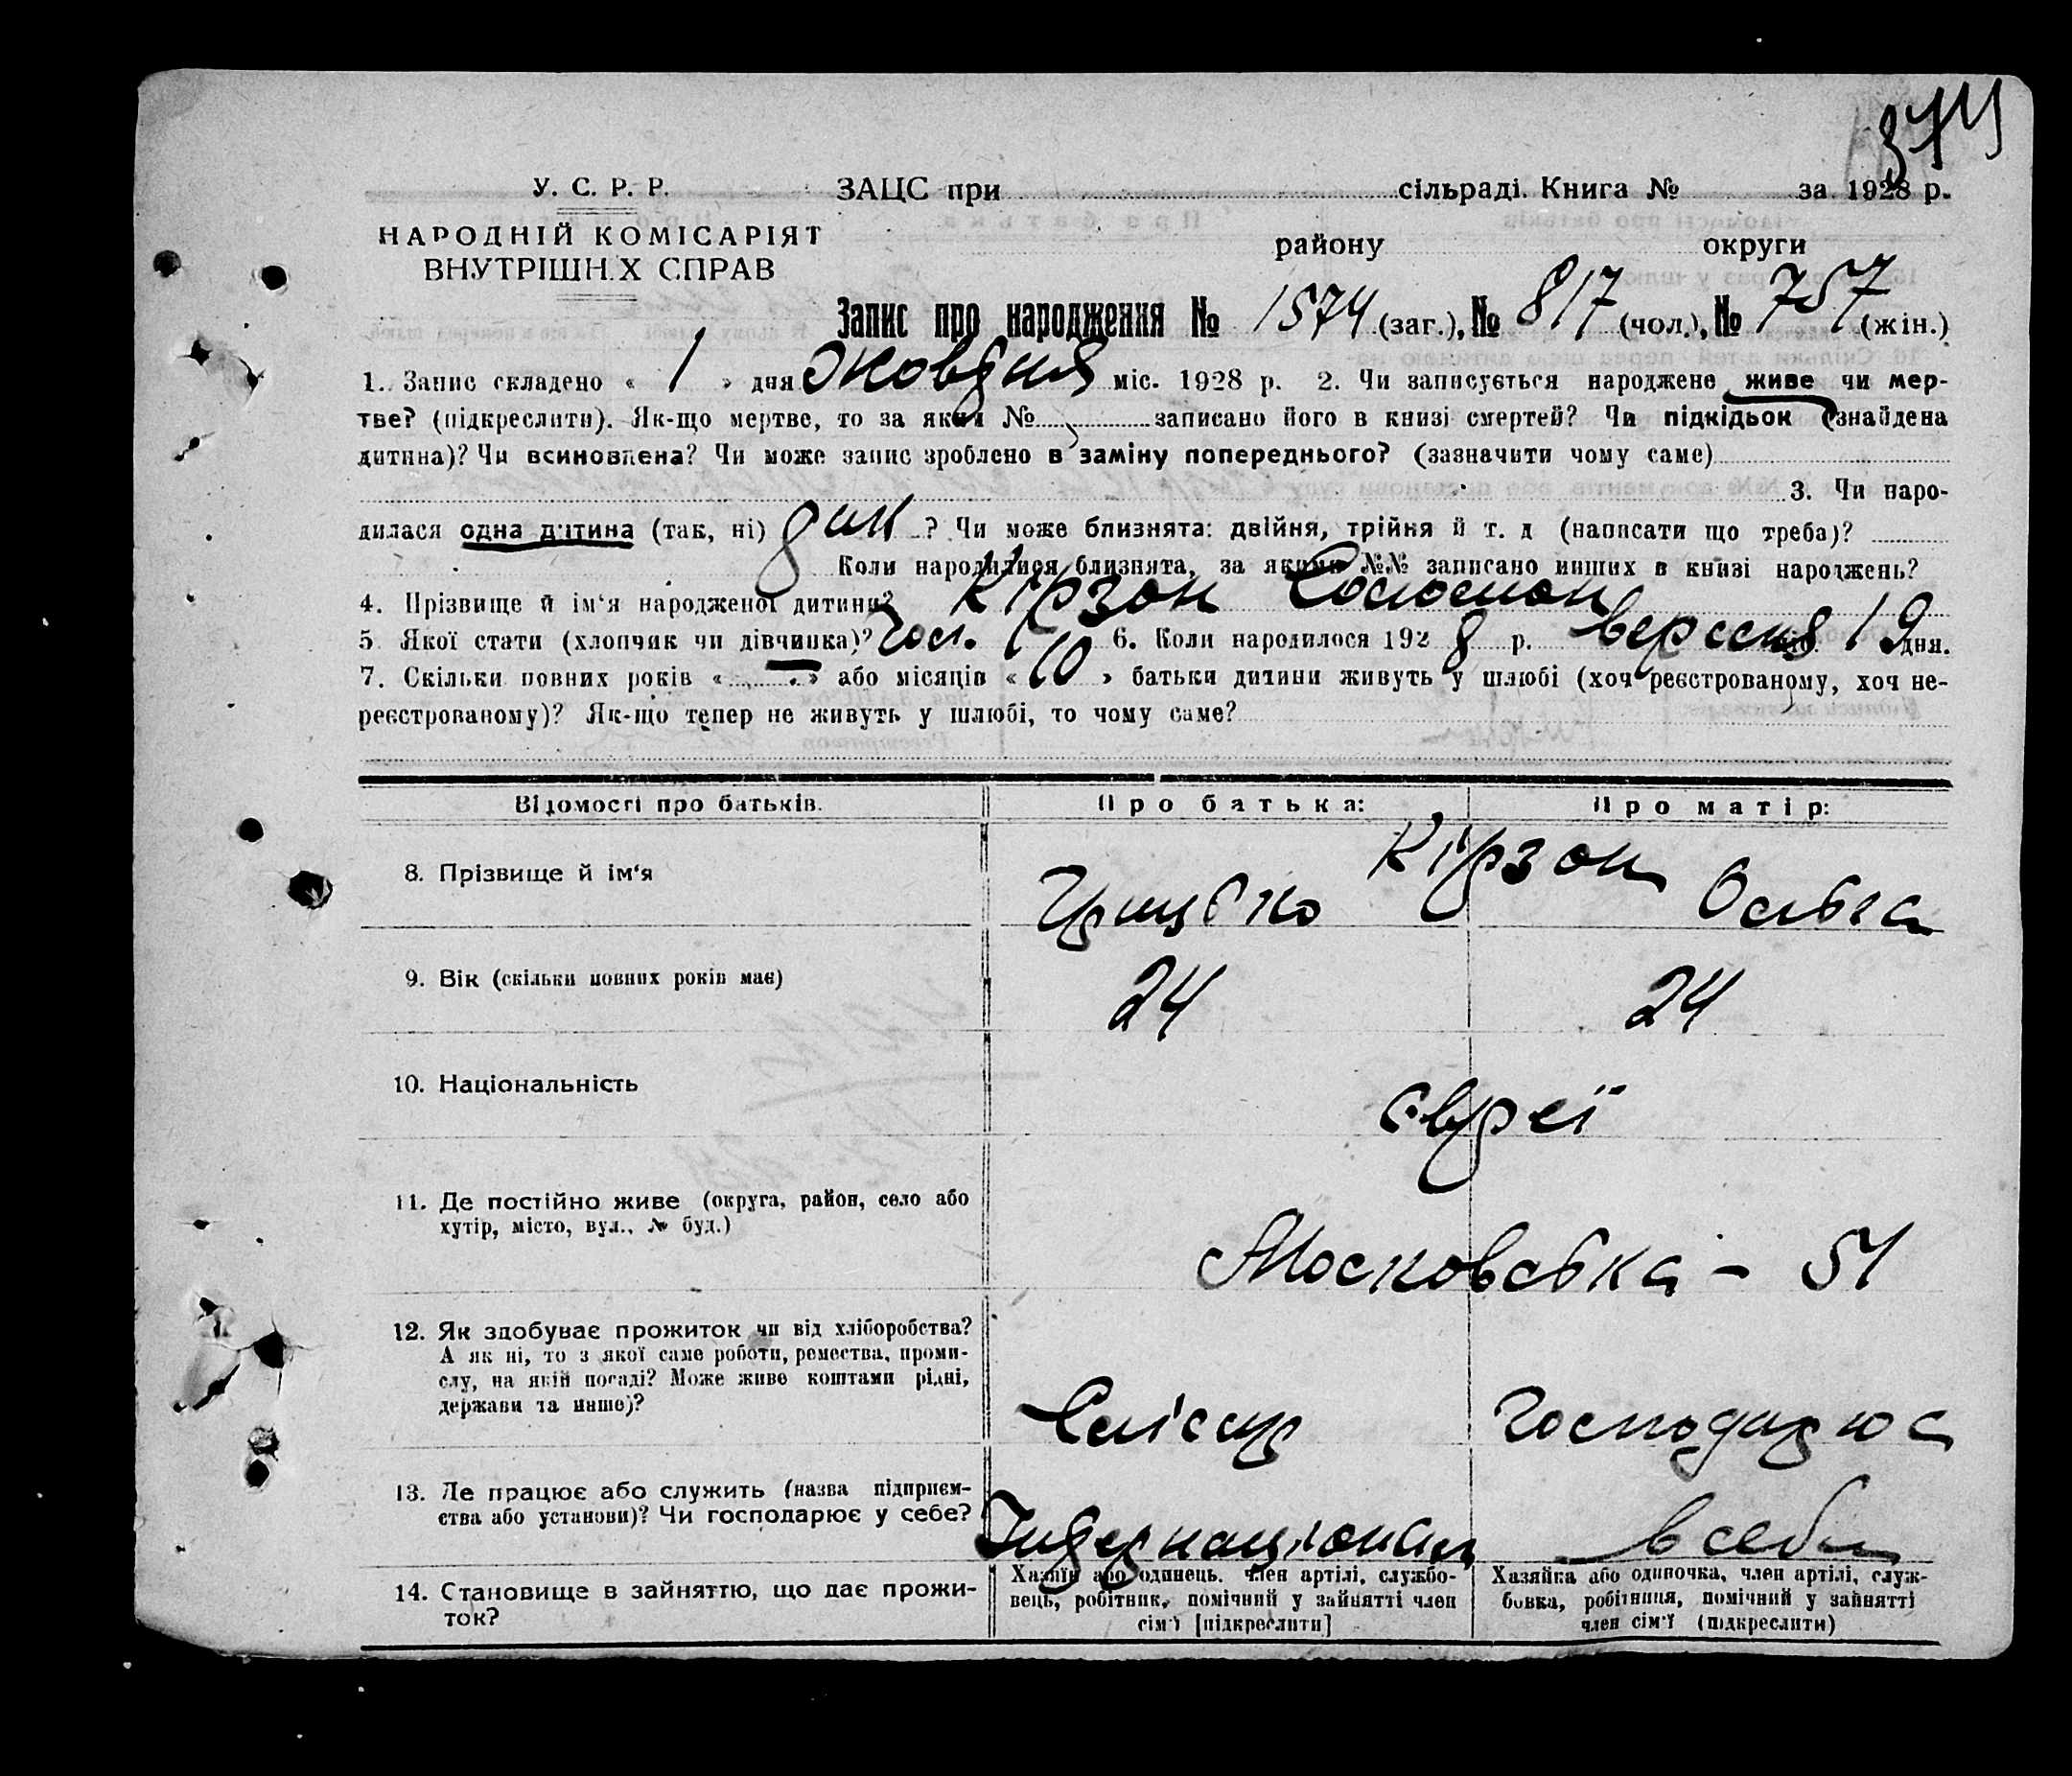 374
У. С. Р. Р.
НАРОДНІЙ КОМІСАРІЯТ
ВНУТРІШНІХ СПРАВ
ЗАЦС при сільраді. Книга № за 1928 р.
району округи
Запис про народження № 1574 (заг.), № 817 (чол.), № 757 (жін.)
1. Запис складено « 1 » дня Жовтня міс. 1928 р. 2. Чи записується народжене живе чи мер-
тве? (підкреслити). Як-що мертве, то за яким № записано його в книзі смертей? Чи підкідьок (знайдена
дитина)? Чи всиновлена? Чи може запис зроблено в заміну попереднього? (зазначити чому саме)
3. Чи наро-
дилася одна дитина (так, ні) ? Чи може близнята: двійня, трійня й т. д (написати що треба)?
Коли народилися близнята, за якими №№ записано инших в книзі народжень?
4. Прізвище й ім'я народженої дитини? Кірзон Соломон
5 Якої стати (хлопчик чи дівчинка)? чол. 6. Коли народилося 1928 р. вересня 19 дня.
7. Скільки повних років « » або місяців « 10 » батьки дитини живуть у шлюбі (хоч реєстрованому, хоч не-
реєстрованому)? Як-що тепер не живуть у шлюбі, то чому саме?
Відомості про батьків. Про батька: Про матір:
8. Прізвище й ім'я Кірзон
Грицько Ольга
9. Вік (скільки повних років має) 24 24
10. Національність євреї
11. Де постійно живе (округа, район, село або
хутір, місто, вул., № буд.)
Московська - 51
12. Як здобуває прожиток чи від хліборобства?
А як ні, то з якої саме роботи, ремества, проми-
слу, на якій посаді? Може живе коштами рідні,
держави та инше)?
Слісар Господарює
13. Де працює або служить (назва підприєм-
ства або установи)? Чи господарює у себе?
Інтернаціонал в себе
14. Становище в зайняттю, що дає прожи-
ток?
Хазяїн або одинець. член артілі, службо-
вець, робітник, помічний у зайнятті член
сім'ї [підкреслити]
Хазяйка або одиночка, член артілі, служ-
бовка, робітниця, помічний у зайнятті
член сім'ї (підкреслити)